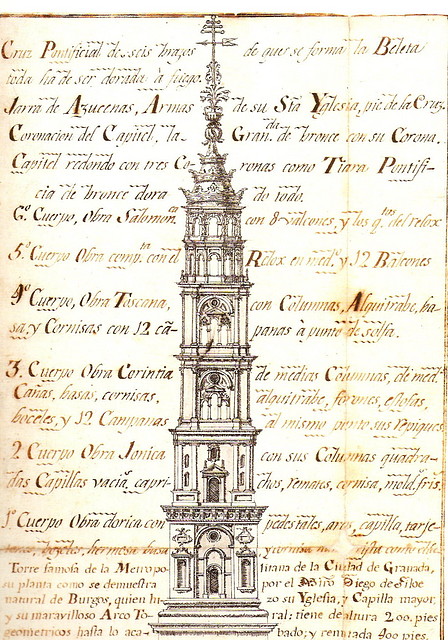 Cruz Pontificial de seis brazos de que se forma la Beleta
toda ha de ser dorada à fuego.
Jarra de Azucenas, Armas de su Sta Yglesia, pie de la Cruz.
Coronacion del Capitel, la Gran.da de bronce con su Corona,
Capitel redondo con tres Coronas como Tiara Pontificia de bronce dorado todo.
6.º Cuerpo, Obra Salomon.ca con 8 valcones, y los q.tos del relox
5.º Cuerpo Obra comp.ta con el Relox en med.º y 12 Balcones
4.º Cuerpo, Obra Toscana, con Columnas, Alquitrabe, basa, y Cornisas con 12 campanas à punto de solfa.
3. Cuerpo Obra Corintia de medias Columnas, de med.
Cañas, basas, cornisas, alquitrabe,
boceles, y 12 Campanas al mismo punto sus repiques
2. Cuerpo Obra Jonica con sus Columnas quadradas Capillas vacia, caprichos, remates, cornisa, mold. fris
1.º Cuerpo Obra dorica con pedestales, aros, capilla, tarje
boceles, hermosa basa y cornisa
Torre famosa de la Metropolitana de la Ciudad de Granada,
su planta como se demuestra por el Mro Diego de Siloe
natural de Burgos, quien hizo su Yglesia, y Capilla mayor,
y su maravilloso Arco Toral: tiene de altura 200, pies
geometricos hasta lo acabado; y centrada 900 pies